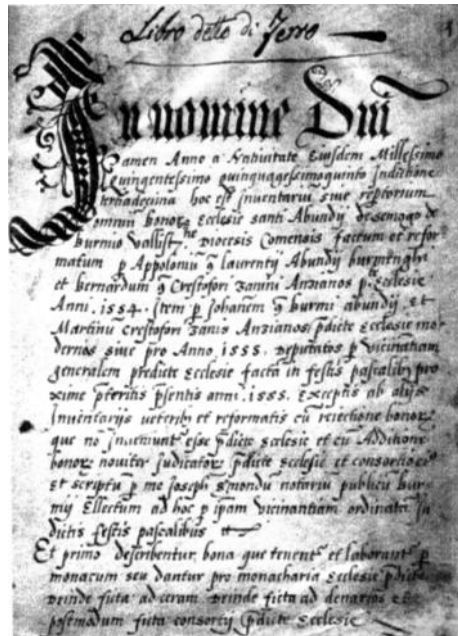 Libro detto di Ferro
In nomine Dni
amen Anno a Nativitate Eiusdem Millessimo
quingentessimo quinquagessimoquinto Indictione
ternadecima hoc est Inventariũ sive reptorium
omniũ bonorʒ Ecclesie santi Abundy de semogo de
burmio vallist.ne Diocesis Comensis factum et refor
matum p Appoloniũ q laurentij Abundij
et bernardum q Crestofori Zanni Anzianos Ecclesie
Anni . 1554 . Item p Johanem q burmi abundij Et
Martinũ Crestofori Zanis Anzianos pdicte Ecclesie mo
dernos sive pro Anno . 1555 . deputatos p vicinatiam
generalem predicte Ecclesie facta in festis pascalibʒ pro
xime pteritis psentis anni . 1555 . Exceptis ab alijs
Inventarijs veteribʒ et reformatis cũ reiectione bonorʒ
que nõ Inveniunt esse pdicte Ecclesie et cũ Additione
bonorʒ noviter Judicatorʒ pdicte Ecclesie et consortio
et scriptũ p me Joseph Smondu notariũ publicũ bur
mij Ellectum ad hoc p ipsam vicinantiam ordinata In
dictis festis pascalibus
Et primo describentur bona que tenent et laborant p
monacum seu dantur pro monacharia Ecclesie pdicte
Deinde ficta ad ceram Deinde ficta ad denarios et
postmodum ficta consortij pdicte Ecclesie